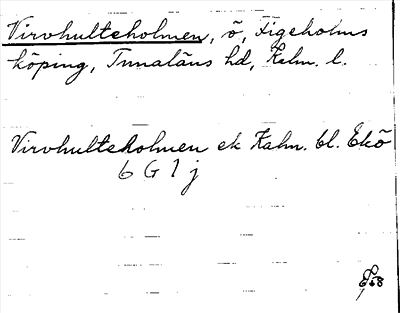 Virvhulteholmen, ö, Figeholms
köping, Tunaläns hd, Kalm. l.
Virvhulteholmen ek Kalm. bl. Ekö
6 G 1 j